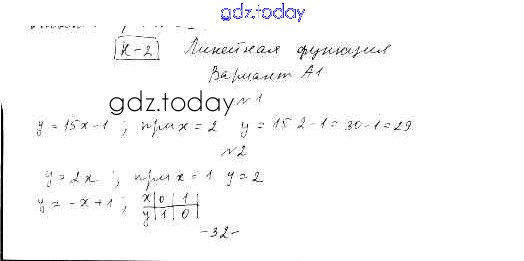 gdz.today
К-2 Линейная функция
Вариант А1
gdz.today
№1
y = 15x-1 ; при x = 2 y = 15 2-1 = 30-1 = 29
№2
y = 2x ; при x = 1 y = 2
y = -x+1 ; x | 0 | 1
y | 1 | 0
-32-